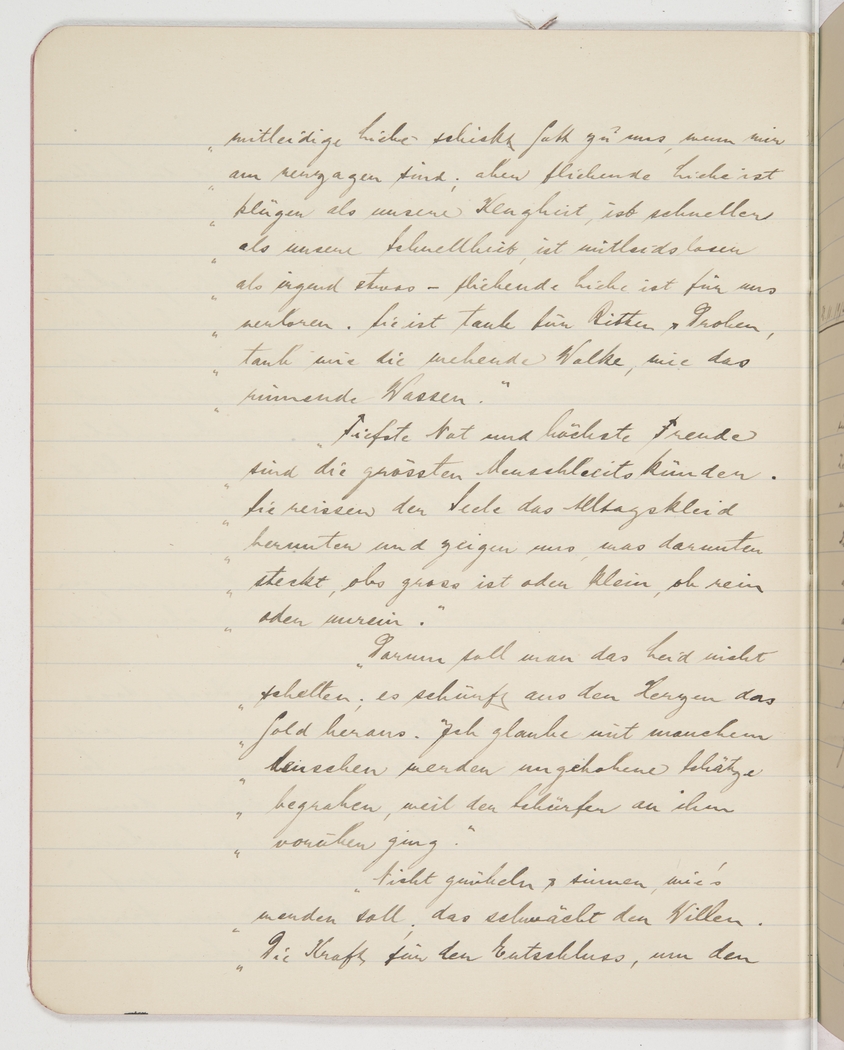 „ mitleidige Liebe schickt Gott zu uns, wenn wir
„ am verzagen sind; aber fliehende Liebe ist
„ klüger als unsere Klugheit, ist schneller
„ als unsere Schnellheit, ist mitleidsloser
„ als irgend etwas – fliehende Liebe ist für uns
„ verloren. Sie ist taub für Bitten & Drohen,
„ taub wie die wehende Wolke, wie das
„ rinnende Wasser."
„Tiefste Not und höchste Freude
„ sind die grössten Menschheitskünder.
„ Sie reissen der Seele das Alltagskleid
„ herunter und zeigen uns, was darunter
„ steckt, obs gross ist oder klein, ob rein
„ oder unrein."
„Darum soll man das Leid nicht
„ schelten; es schürft aus den Herzen das
„ Gold heraus. Ich glaube mit manchem
„ Menschen werden ungehobene Schätze
„ begraben, weil der Schürfer an ihm
„ vorüber ging."
„Nicht grübeln & sinnen, wie's
„ werden soll, das schwächt den Willen.
„ Die Kraft für den Entschluss, um den